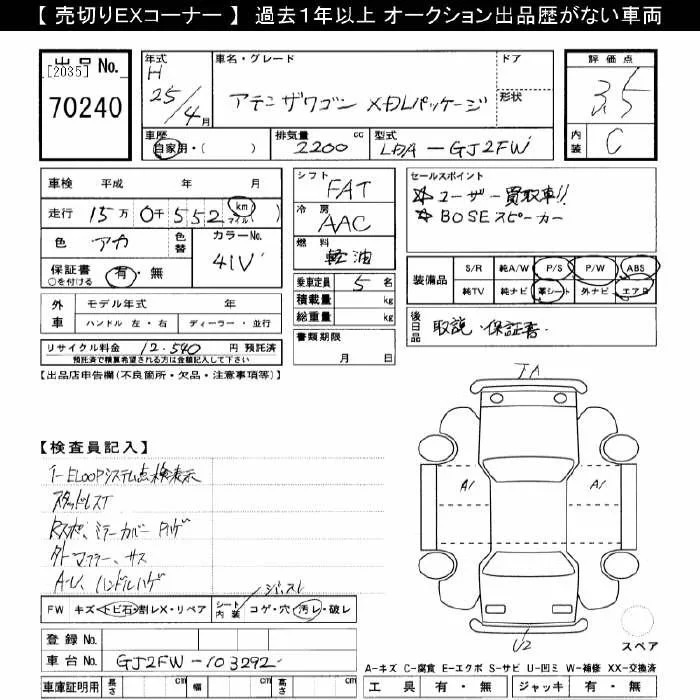 【 売切りEXコーナー 】 過去1年以上 オークション出品歴がない車両
出品 No.
[2035]
70240
年式
H 25/4月
車名・グレード
アテンザワゴン XDLパッケージ
ドア
形状
評価点
3.5
内装 C
車歴
自家用・( )
排気量 2200 cc
型式 LDA-GJ2FW
車検 平成 年 月
走行 15万 0千552 km マイル
色 アカ 色替
カラーNo. 41V
保証書 有・無
○を付ける
外車 モデル年式 年
ハンドル 左・右 ディーラー・並行
リサイクル料金 12,540 円 預託済
預託済で積算希望される方は金額記入して下さい
シフト FAT
冷房 AAC
燃料 軽油
乗車定員 5 名
積載量 kg
総重量 kg
書類期限
月 日
セールスポイント
☆ ユーザー買取車!!
☆ BOSEスピーカー
装備品 S/R 純A/W P/S P/W ABS
純TV 純ナビ 革シート 外ナビ エアB
後日品 取説・保証書
【出品店申告欄(不良箇所・欠品・注意事項等)】
【検査員記入】
i-ELOOPシステム点検表示
スタッドレスT
Rスポ、ミラーカバー
マフラー、サス
ハンドルハゲ
FW キズ・トビ石・割レX・リペア
シート内装 コゲ・穴・汚レ・破レ
登録 No.
車台 No. GJ2FW-103292
車庫証明用 長さ cm 幅 cm 高さ cm
A1
A1
U2
スペア
A-キズ C-腐食 E-エクボ S-サビ U-凹ミ W-補修 XX-交換済
工具 有・無 ジャッキ 有・無